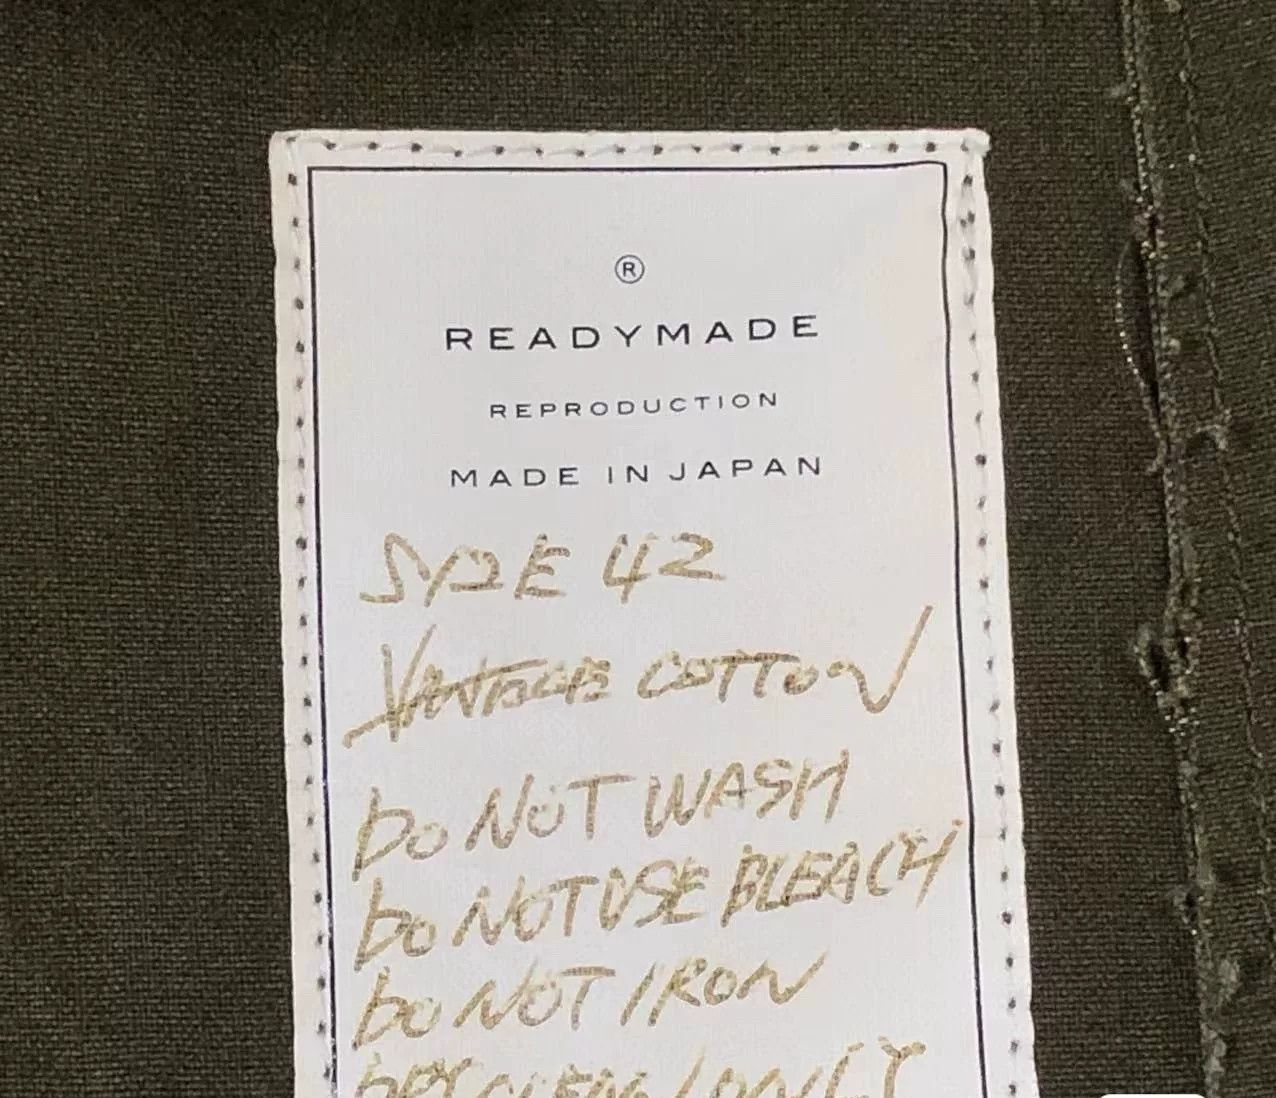 ®
READYMADE
REPRODUCTION
MADE IN JAPAN
SIZE 42
VINTAGE COTTON
DO NOT WASH
DO NOT USE BLEACH
DO NOT IRON
DRY CLEAN ONLY